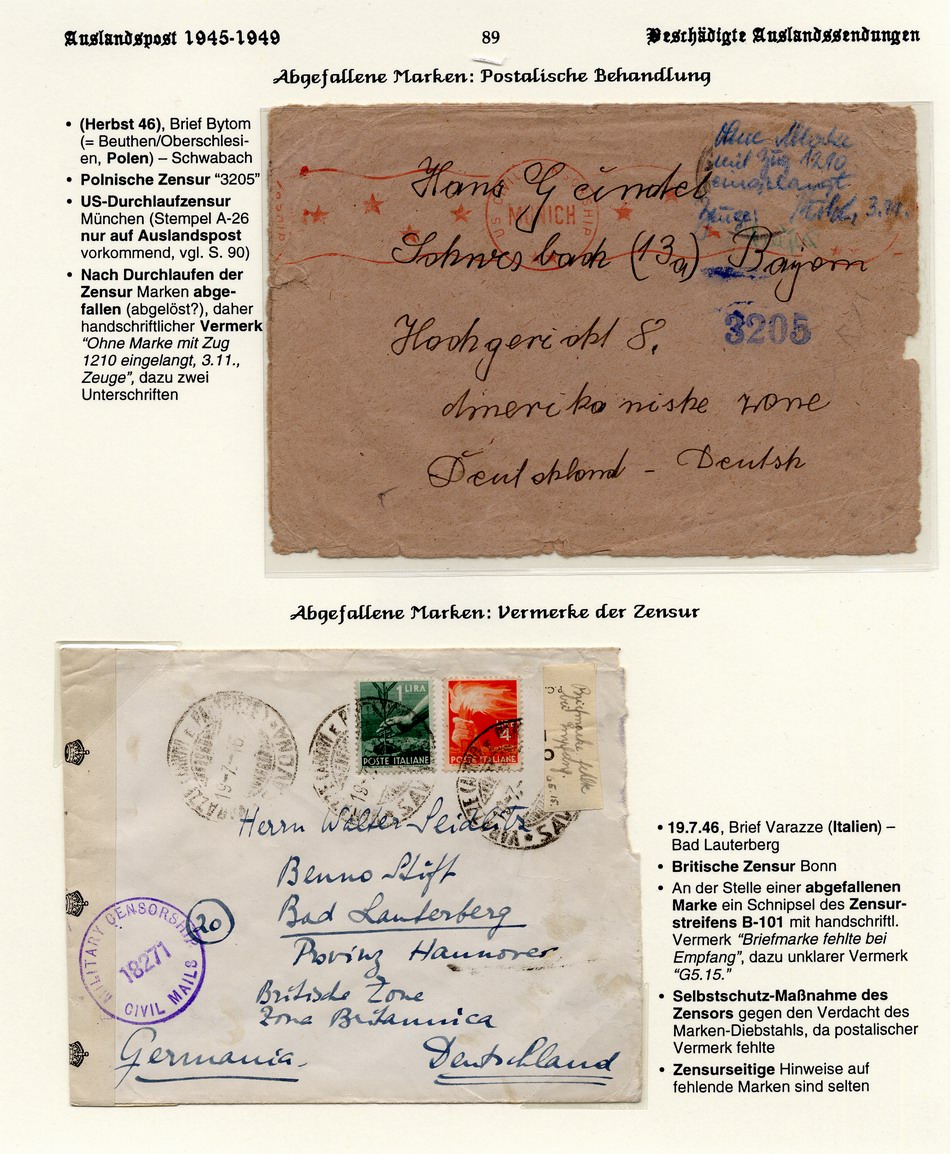 Auslandspost 1945-1949
89
Beschädigte Auslandssendungen
Abgefallene Marken: Postalische Behandlung
• (Herbst 46), Brief Bytom
(= Beuthen/Oberschlesi-
en, Polen) – Schwabach
• Polnische Zensur “3205”
• US-Durchlaufzensur
München (Stempel A-26
nur auf Auslandspost
vorkommend, vgl. S. 90)
• Nach Durchlaufen der
Zensur Marken abge-
fallen (abgelöst?), daher
handschriftlicher Vermerk
“Ohne Marke mit Zug
1210 eingelangt, 3.11.,
Zeuge”, dazu zwei
Unterschriften
Ohne Marke
mit Zug 1210
eingelangt
Zeuge: 3.11.
MUNICH
Hans Gündel
Schwabach (13a) Bayern
3205
Hochgericht 8.
Amerikaniske zone
Deutschland - Deutsh
Abgefallene Marken: Vermerke der Zensur
1 LIRA
POSTE ITALIANE
4
POSTE ITALIANE
Briefmarke fehlte
bei Empfang.
19-7-
Herrn Walter Seidlitz
Benno Stift
Bad Lauterberg
Provinz Hannover
Britische Zone
Zona Britannica
Germania. Deutschland
20
MILITARY CENSORSHIP
18271
CIVIL MAILS
• 19.7.46, Brief Varazze (Italien) –
Bad Lauterberg
• Britische Zensur Bonn
• An der Stelle einer abgefallenen
Marke ein Schnipsel des Zensur-
streifens B-101 mit handschriftl.
Vermerk “Briefmarke fehlte bei
Empfang”, dazu unklarer Vermerk
“G5.15.”
• Selbstschutz-Maßnahme des
Zensors gegen den Verdacht des
Marken-Diebstahls, da postalischer
Vermerk fehlte
• Zensurseitige Hinweise auf
fehlende Marken sind selten